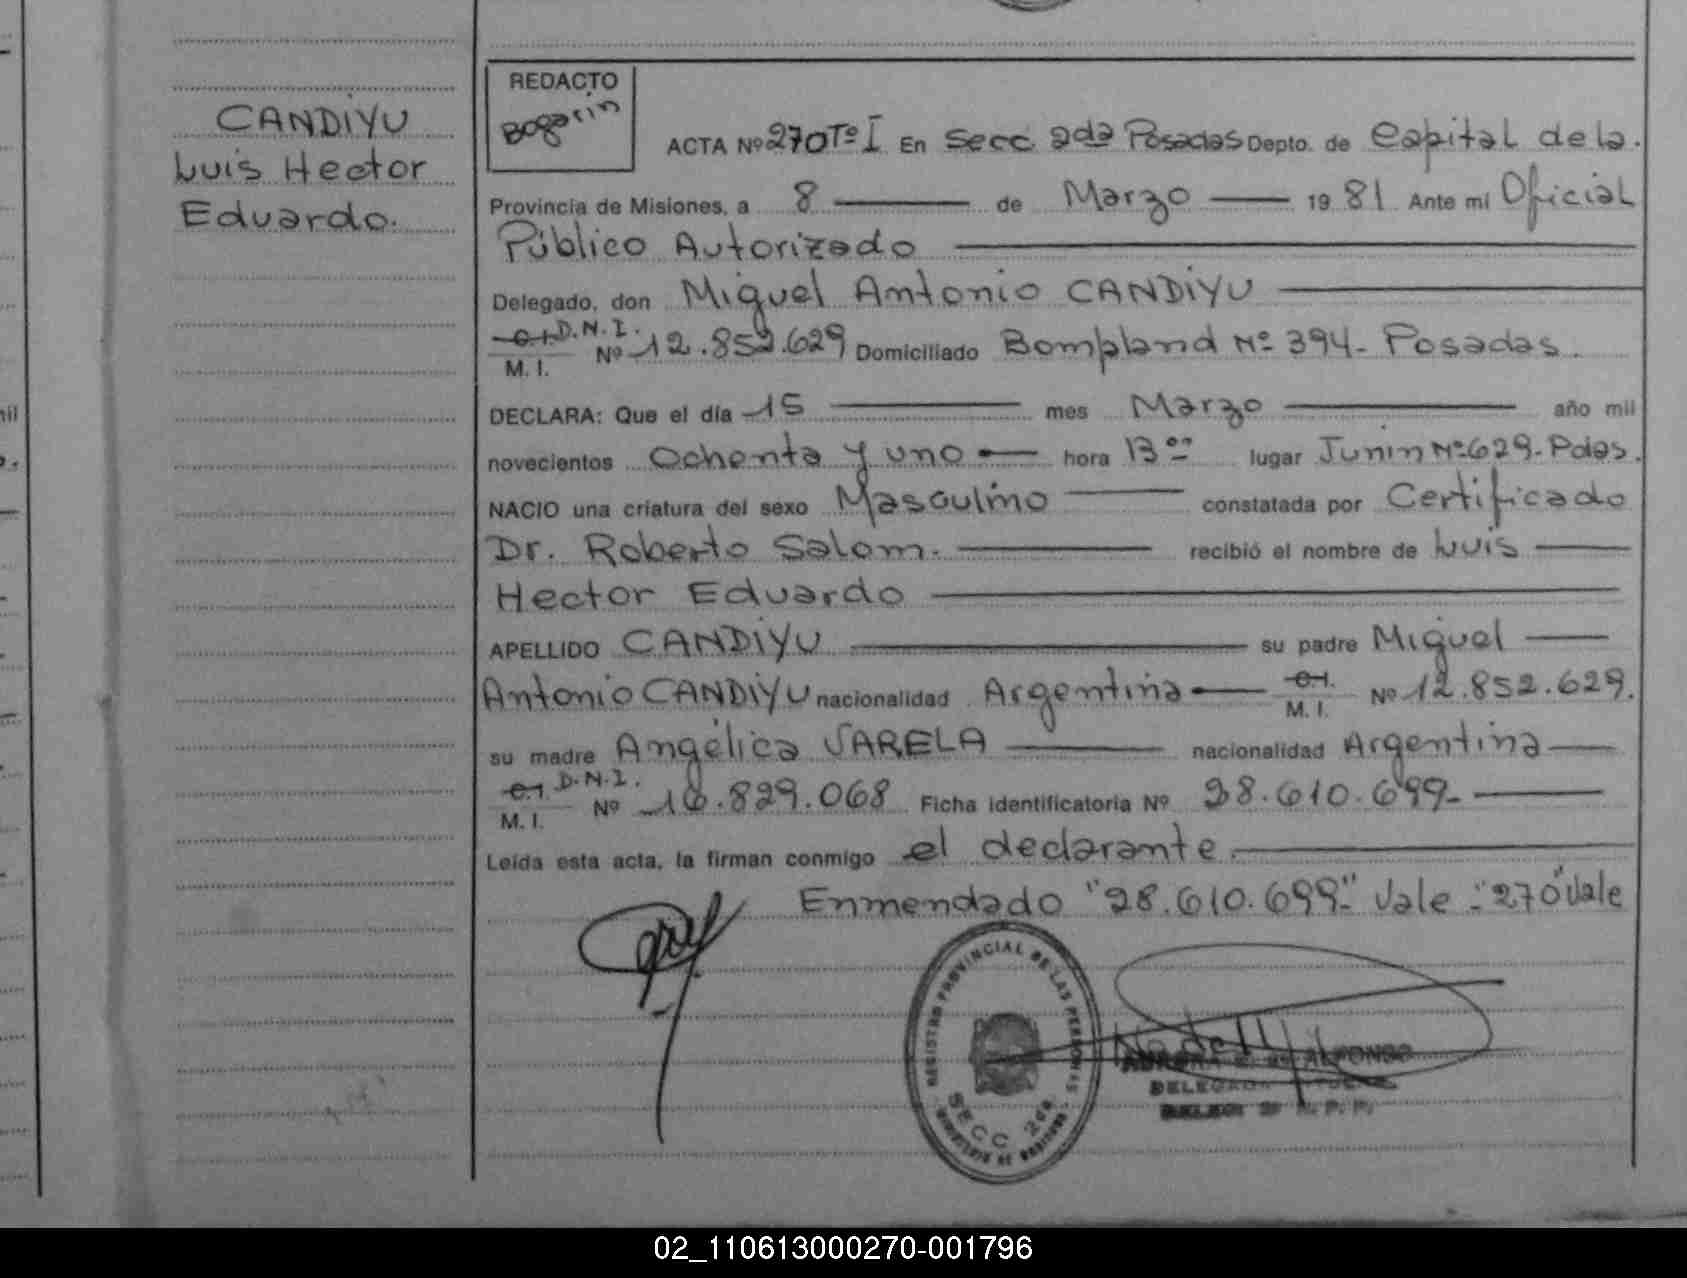 CANDIYU
Luis Hector
Eduardo.
REDACTO
Bogarin
ACTA Nº 270 Tº I En Secc. 2da Posadas Depto. de Capital de la.
Provincia de Misiones, a 8 de Marzo 1981 Ante mi Oficial
Público Autorizado
Delegado, don Miguel Antonio CANDIYU
C.I. D.N.I.
M. I. Nº 12.852.629 Domiciliado Bompland Nº 394- Posadas.
DECLARA: Que el día 15 mes Marzo año mil
novecientos Ochenta y uno hora 13 oo lugar Junin Nº 629- Pdas.
NACIO una criatura del sexo Masculino constatada por Certificado
Dr. Roberto Salom. recibió el nombre de Luis
Hector Eduardo
APELLIDO CANDIYU su padre Miguel
Antonio CANDIYU nacionalidad Argentina C.I. M. I. Nº 12.852.629.
su madre Angélica VARELA nacionalidad Argentina
C.I. D.N.I.
M. I. Nº 16.829.068 Ficha identificatoria Nº 28.610.699-
Leída esta acta, la firman conmigo el declarante.
Enmendado "28.610.699-" Vale -"270" Vale
REGISTRO PROVINCIAL DE LAS PERSONAS
SECC 2da
ALFONSO
02_110613000270-001796